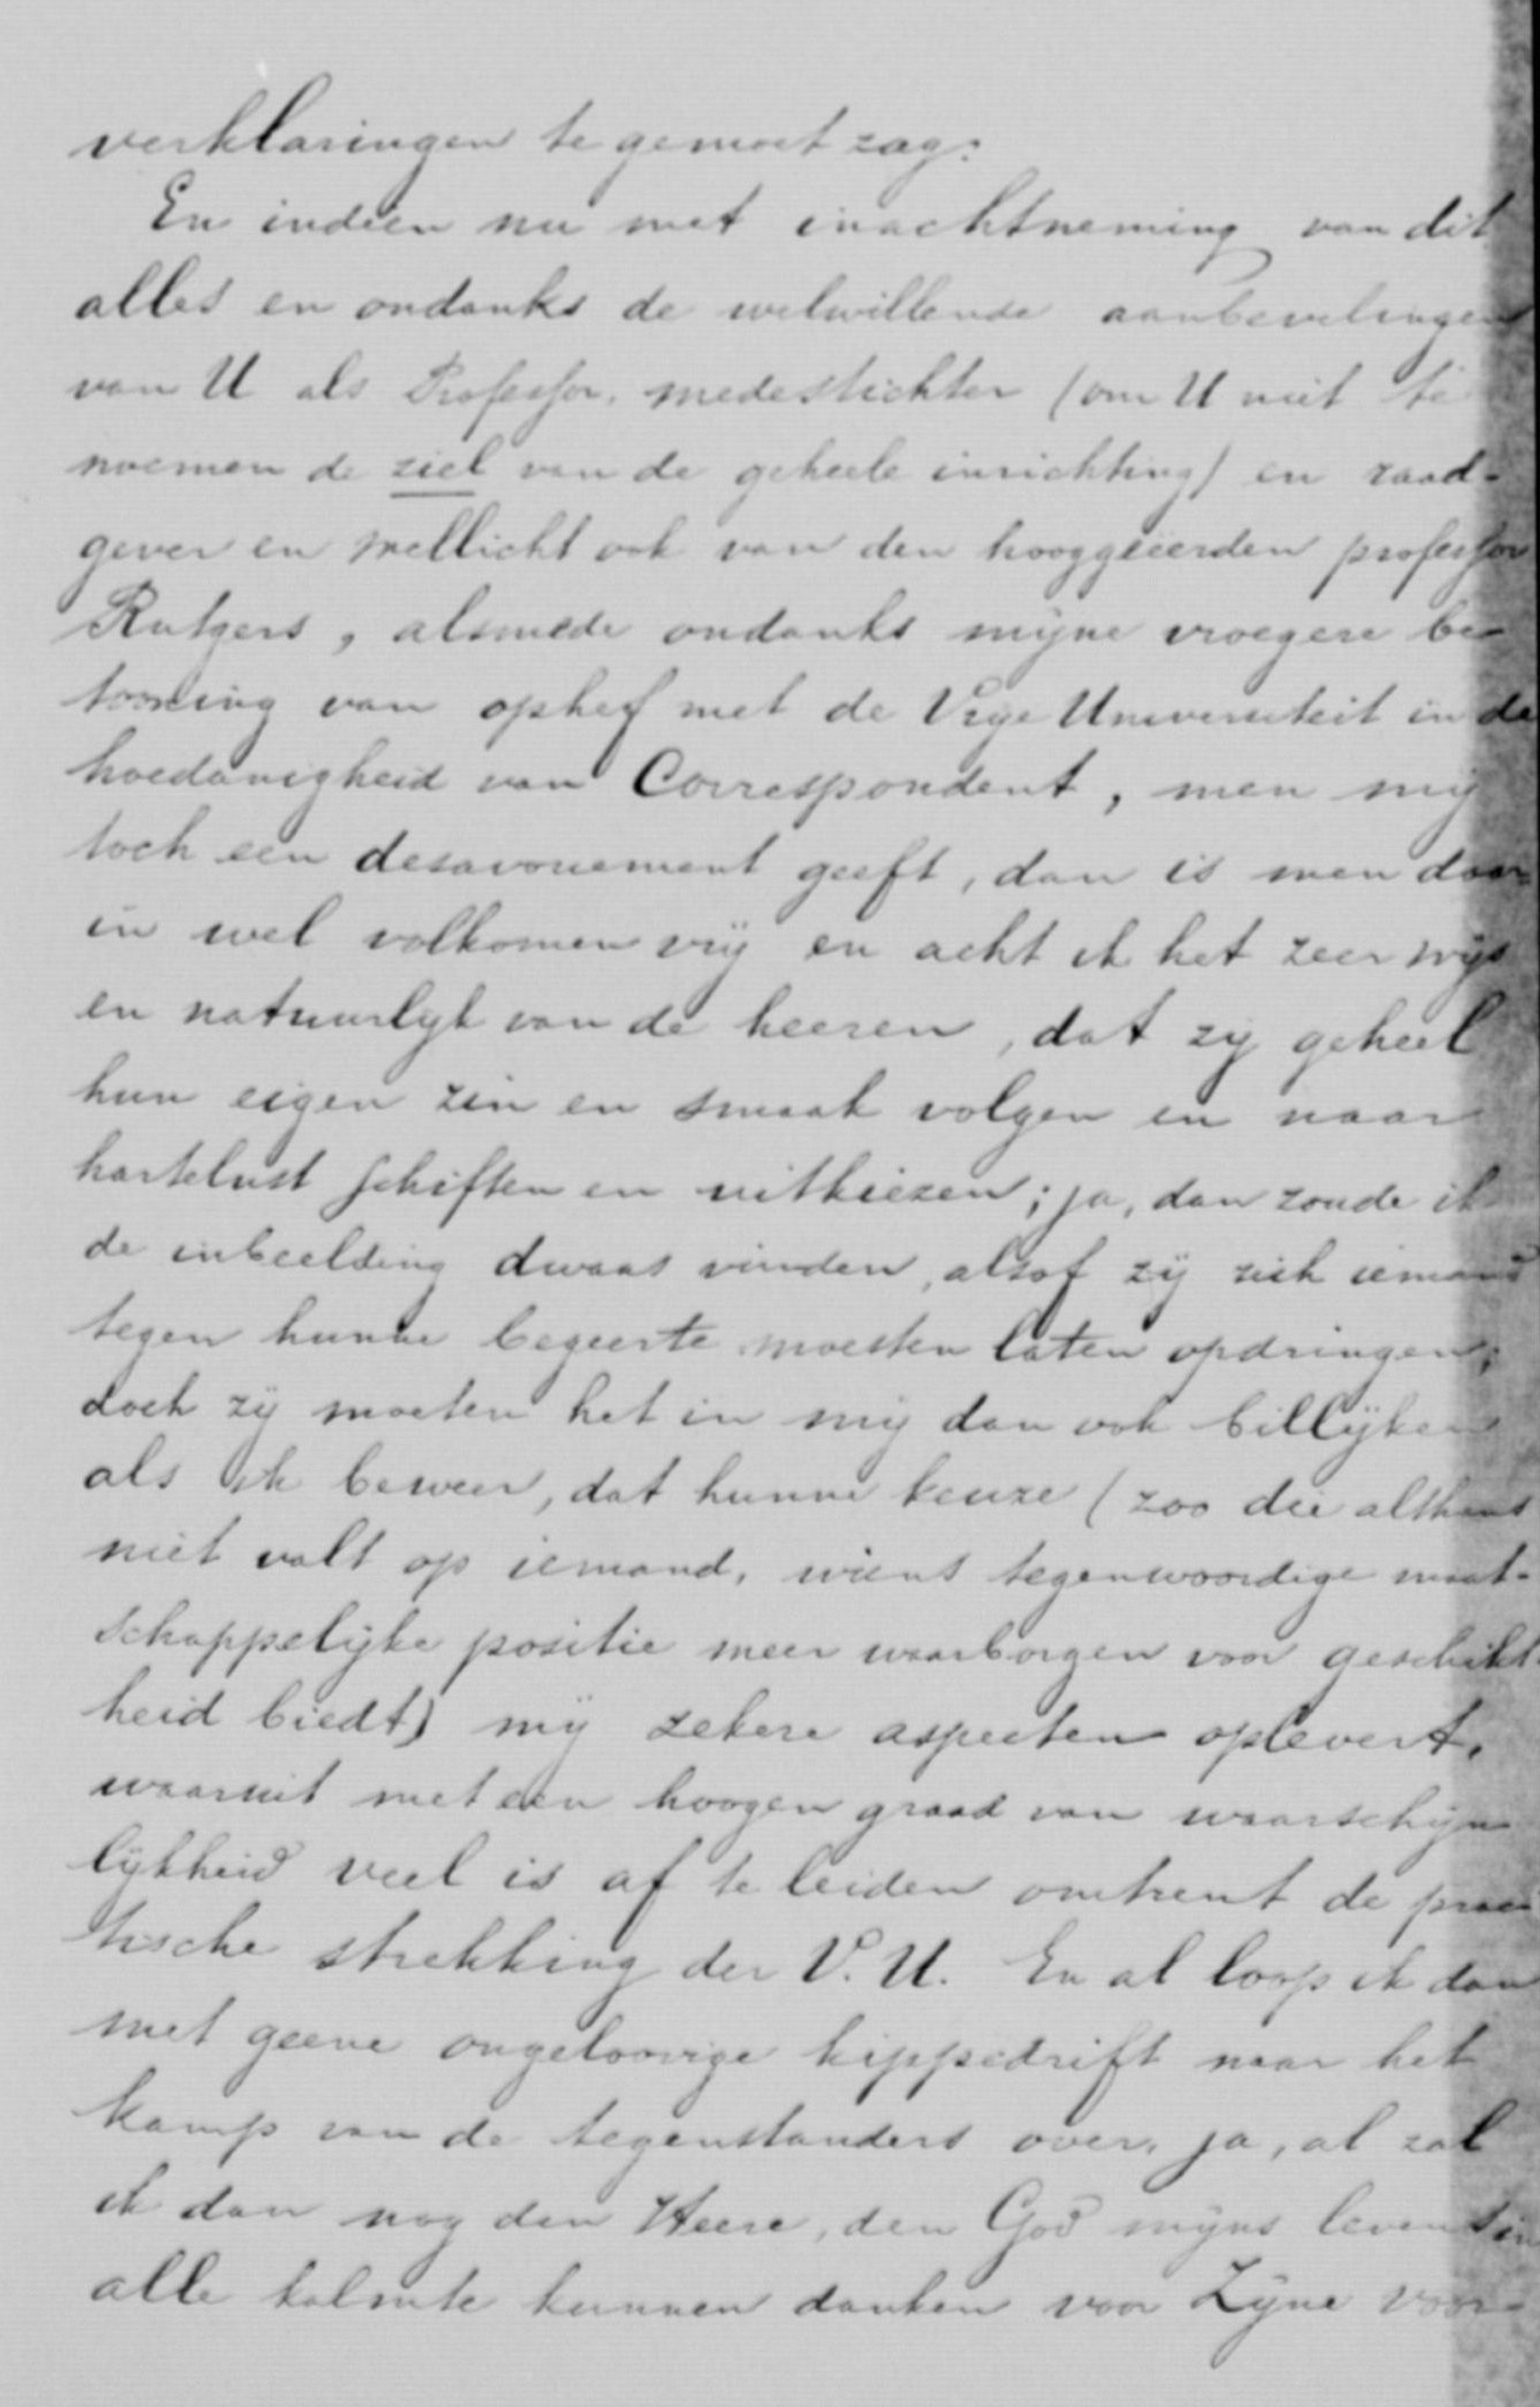 verklaringen te gemoet zag.
En indien nu met inachtneming van dit
alles en ondanks de welwillende aanbevelingen
van U als Professor, medestichter (om U niet te
noemen de ziel van de geheele inrichting) en raad-
gever en wellicht ook van den hooggeëerden professor
Rutgers, alsmede ondanks mijne vroegere be-
tooning van ophef met de Vrije Universiteit in de
hoedanigheid van Correspondent, men mij
toch een desavouement geeft, dan is men daar-
in wel volkomen vrij en acht ik het zeer wijs
en natuurlijk van de heeren, dat zij geheel
hun eigen zin en smaak volgen en naar
hartelust schiften en uitkiezen; ja, dan zoude ik
de inbeelding dwaas vinden, alsof zij zich iemand
tegen hunne begeerte moesten laten opdringen;
doch zij moeten het in mij dan ook billijken
als ik beweer, dat hunne keuze (zoo die althans
niet valt op iemand, wiens tegenwoordige maat-
schappelijke positie meer waarborgen voor geschikt-
heid biedt) mij zekere aspecten oplevert,
waaruit met een hoogen graad van waarschijn-
lijkheid veel is af te leiden omtrent de prac-
tische strekking der V. U. En al loop ik dan
met geene ongeloovige kippedrift naar het
kamp van de tegenstanders over, ja, al zal
ik dan nog den Heere, den God mijns levens in
alle kalmte kunnen danken voor Zijne voor-